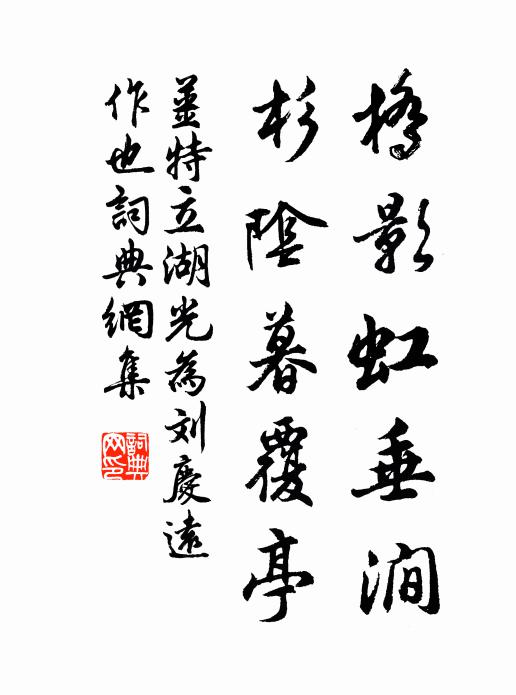 橋影虹垂澗
杉陰暮覆亭
姜特立湖光為刘慶遠
作也詞典網集
詞典网印